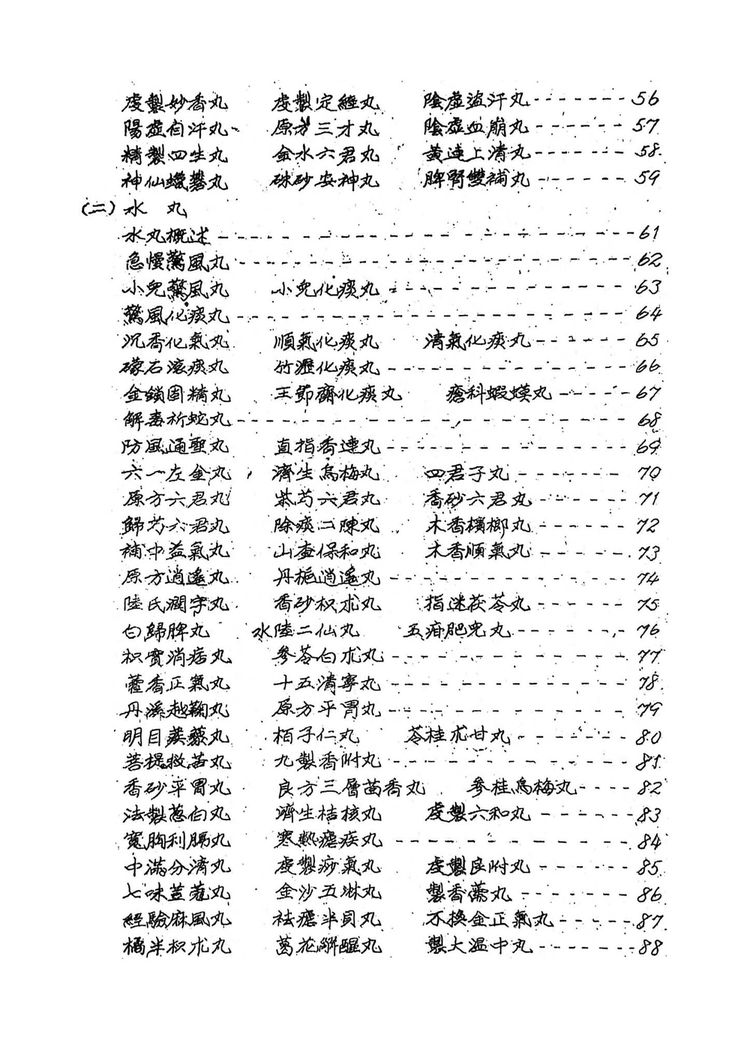 虔製妙香丸 虔製定經丸 陰虛盜汗丸-------56
陽虛自汗丸 原方三才丸 陰虛血崩丸-------57
精製四生丸 金水六君丸 黃連上清丸-------58
神仙蠟礬丸 硃砂安神丸 脾腎雙補丸-------59
(二)水 丸
水丸概述-------61
急慢驚風丸-------62
小兒驚風丸 小兒化痰丸-------63
驚風化痰丸-------64
沉香化氣丸 順氣化痰丸 清氣化痰丸-------65
礞石滾痰丸 竹瀝化痰丸-------66
金鎖固精丸 王節齋化痰丸 瘡科蝦蟆丸-------67
解毒蘄蛇丸-------68
防風通聖丸 直指香連丸-------69
六一左金丸 濟生烏梅丸 四君子丸-------70
原方六君丸 柴芍六君丸 香砂六君丸-------71
歸芍六君丸 除痰二陳丸 木香檳榔丸-------72
補中益氣丸 山查保和丸 木香順氣丸-------73
原方逍遙丸 丹梔逍遙丸-------74
陸氏潤字丸 香砂枳朮丸 指迷茯苓丸-------75
白歸脾丸 水陸二仙丸 五疳肥兒丸-------76
枳實消痞丸 參苓白朮丸-------77
藿香正氣丸 十五清寧丸-------78
丹溪越鞠丸 原方平胃丸-------79
明目蒺藜丸 栢子仁丸 苓桂朮甘丸-------80
菩提救苦丸 九製香附丸-------81
香砂平胃丸 良方三層茴香丸 參桂烏梅丸----82
法製蔥白丸 濟生桔核丸 虔製六和丸-------83
寬胸利膈丸 寒熱瘧疾丸-------84
中滿分消丸 虔製痧氣丸 虔製良附丸-------85
七味荳蔻丸 金沙五淋丸 製香薷丸-------86
經驗麻風丸 祛瘧半貝丸 不換金正氣丸-----87
橘半枳朮丸 葛花解酲丸 製大溫中丸-------88